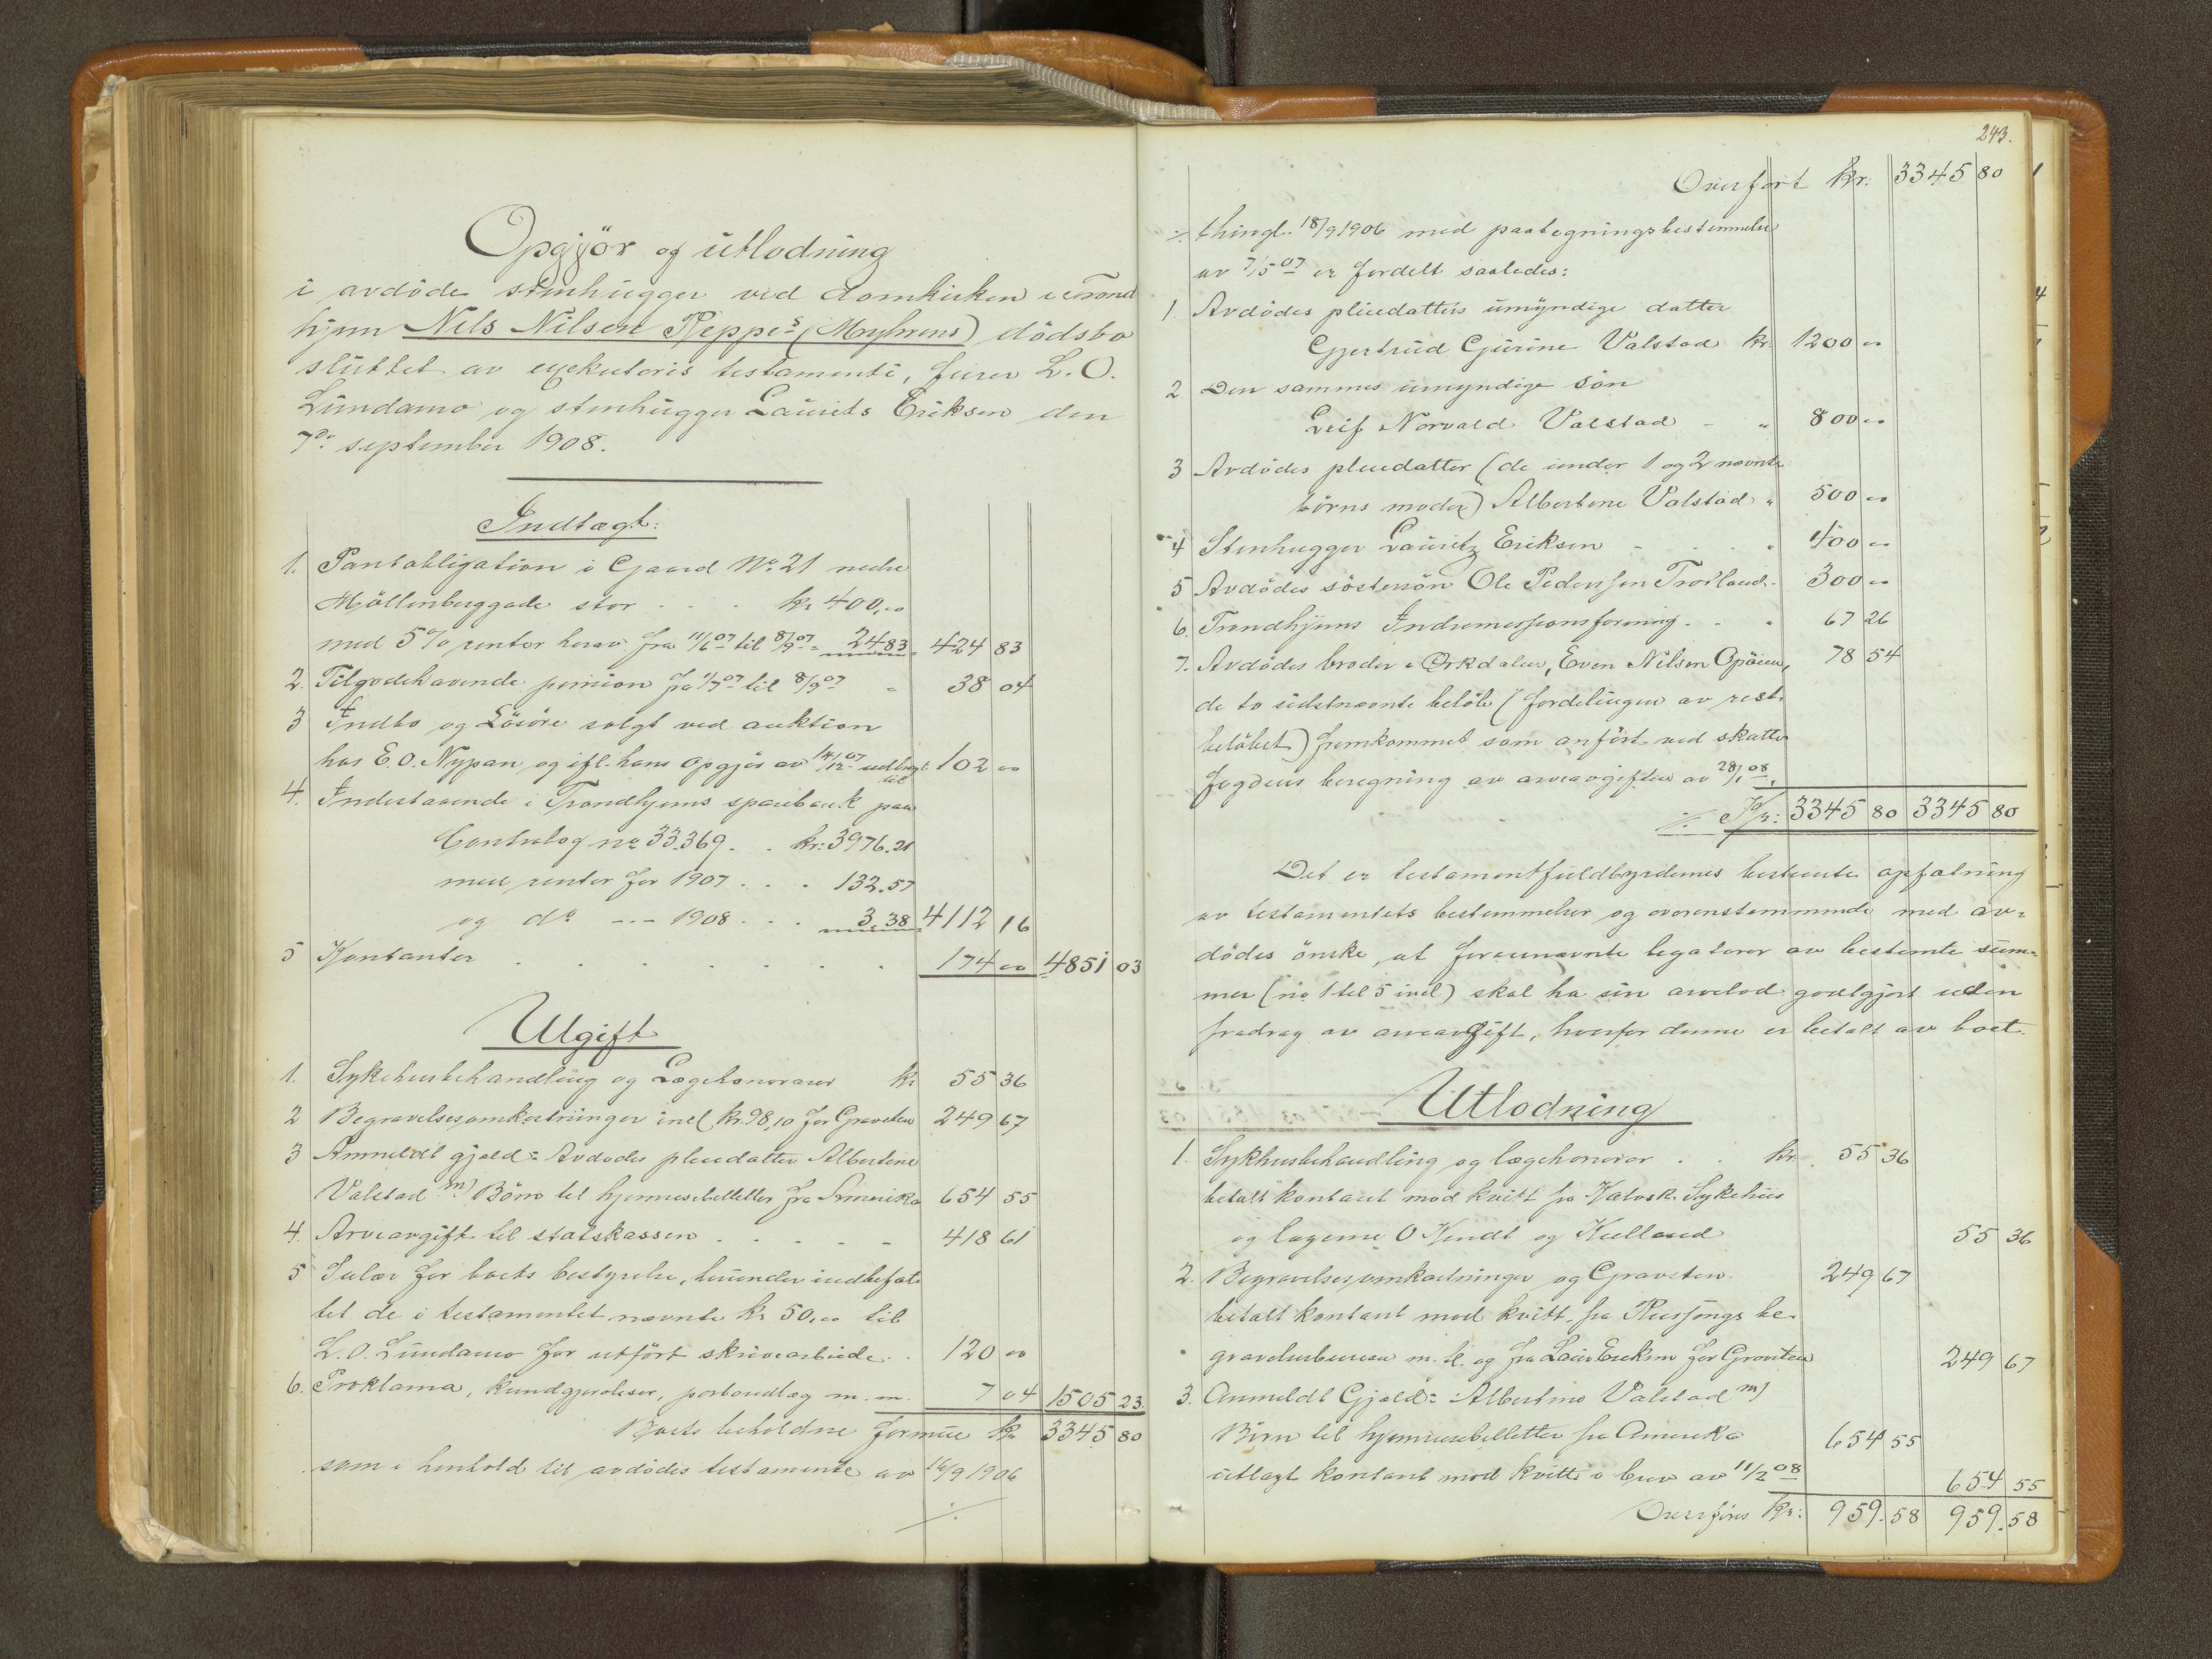 Opgjör og utlodning
i avdöde stenhugger ved domkirken i Trond
hjem Nils Nilsen Reppes (Myhrens) dödsbo
sluttet av exekutoris testamenti, furer L. O.
Lundamo og stenhugger Laurits Eriksen den
7de september 1908.
Indtægt:
1. Pantobligation i Gaard No. 21 nedre
Möllenberggade stor . . . kr 400,00
med 5% renter herav fra 11/6 07 til 8/9 07 = 24 83 424 83
2. Tilgodehavende pension fra 1/7 07 til 8/9 07 " 38 04
3 Indbo og Lösöre solgt ved auktion
hos E. O. Nypan og ifl. hans opgjör av 14/12 07 udbragt til 102 00
4. Indestaaende i Trondhjems sparebank paa
Contrabog no 33.369 . . kr: 3976.21
med renter for 1907 . . . 132.57
og do --- 1908 . . . 3.38 4112 16
5 Kontanter . . . . . . . 174 00 4851 03
Utgift
1. Sykehusbehandling og Lægehonorarer kr 55 36
2 Begravelsesomkostninger incl kr. 98,10 for Gravsten 249 67
3 Anmeldt gjæld: Avdødes pleiedatter Albertine
Valstad m/ Börn til hjemreisebilletter fra Amerika 654 55
4. Arveavgift til statskassen . . . . . 418 61
5 Salær for boets bestyrelse, herunder indbefat-
tet de i testamentet nævnte kr 50,00 til
L. O. Lundamo for utfört skrivearbeide . . 120 00
6. Proklama, kundgjørelser, portoudlæg m. m. 7 04 1505 23
Boets beholdne formue kr 3345 80
som i henhold til avdödes testamente av 16/9 1906
./.
243.
Overfört kr. 3345 80
./. thingl. 18/9 1906 med paategningsbestemmelse
av 7/5 07 er fordelt saaledes:
1 Avdödes pleiedatters umyndige datter
Gjertrud Gurine Valstad kr. 1200 00
2 Den sammes umyndige sön
Leif Norvald Valstad - " 800 00
3 Avdödes pleiedatter (de under 1 og 2 nævnte
börns moder) Albertine Valstad " 500 00
4 Stenhugger Lauritz Eriksen - . . " 400 00
5 Avdödes söstersön Ole Pedersen - 300 00
6. Trondhjems Indremissionsforening . - " 67 26
7. Avdödes broder i Orkdalen, Even Nilsen 78 54
de to sidstnævnte belöb (fordelingen av rest-
belöbet) fremkommet som anfört ved skatte
fogdens beregning av arveavgiften av 28/1 08.
./. Kr: 3345 80 3345 80
Det er testamentfuldbyrdernes bestemte opfatning
av testamentets bestemmelser og overensstemmende med av-
dödes önske, at foranævnte legatarer av bestemte sum-
mer (no 1 til 5 incl) skal ha sin arvelod godtgjort uden
fradrag av arveavgift, hvorfor denne er betalt av boet.
Utlodning
1. Sykhusbehandling og lægehonorar . . kr. 55 36
betalt kontant mod kvitt fra Katolsk Sykehus
og lægerne O Kindt og Kielland 55 36
2. Begravelsesomkostninger og Gravsten 249 67
betalt kontant mod kvitt. fra be-
gravelsesbureau m. fl. og fra Laur Eriksen for Gravsten 249 67
3. Anmeldt Gjæld: Albertine Valstad m/
Börn til hjemreisebilletter fra Amerika 654 55
utlagt kontant mod kvitt i brev av 11/2 08 654 55
Overföres kr: 959.58 959.58